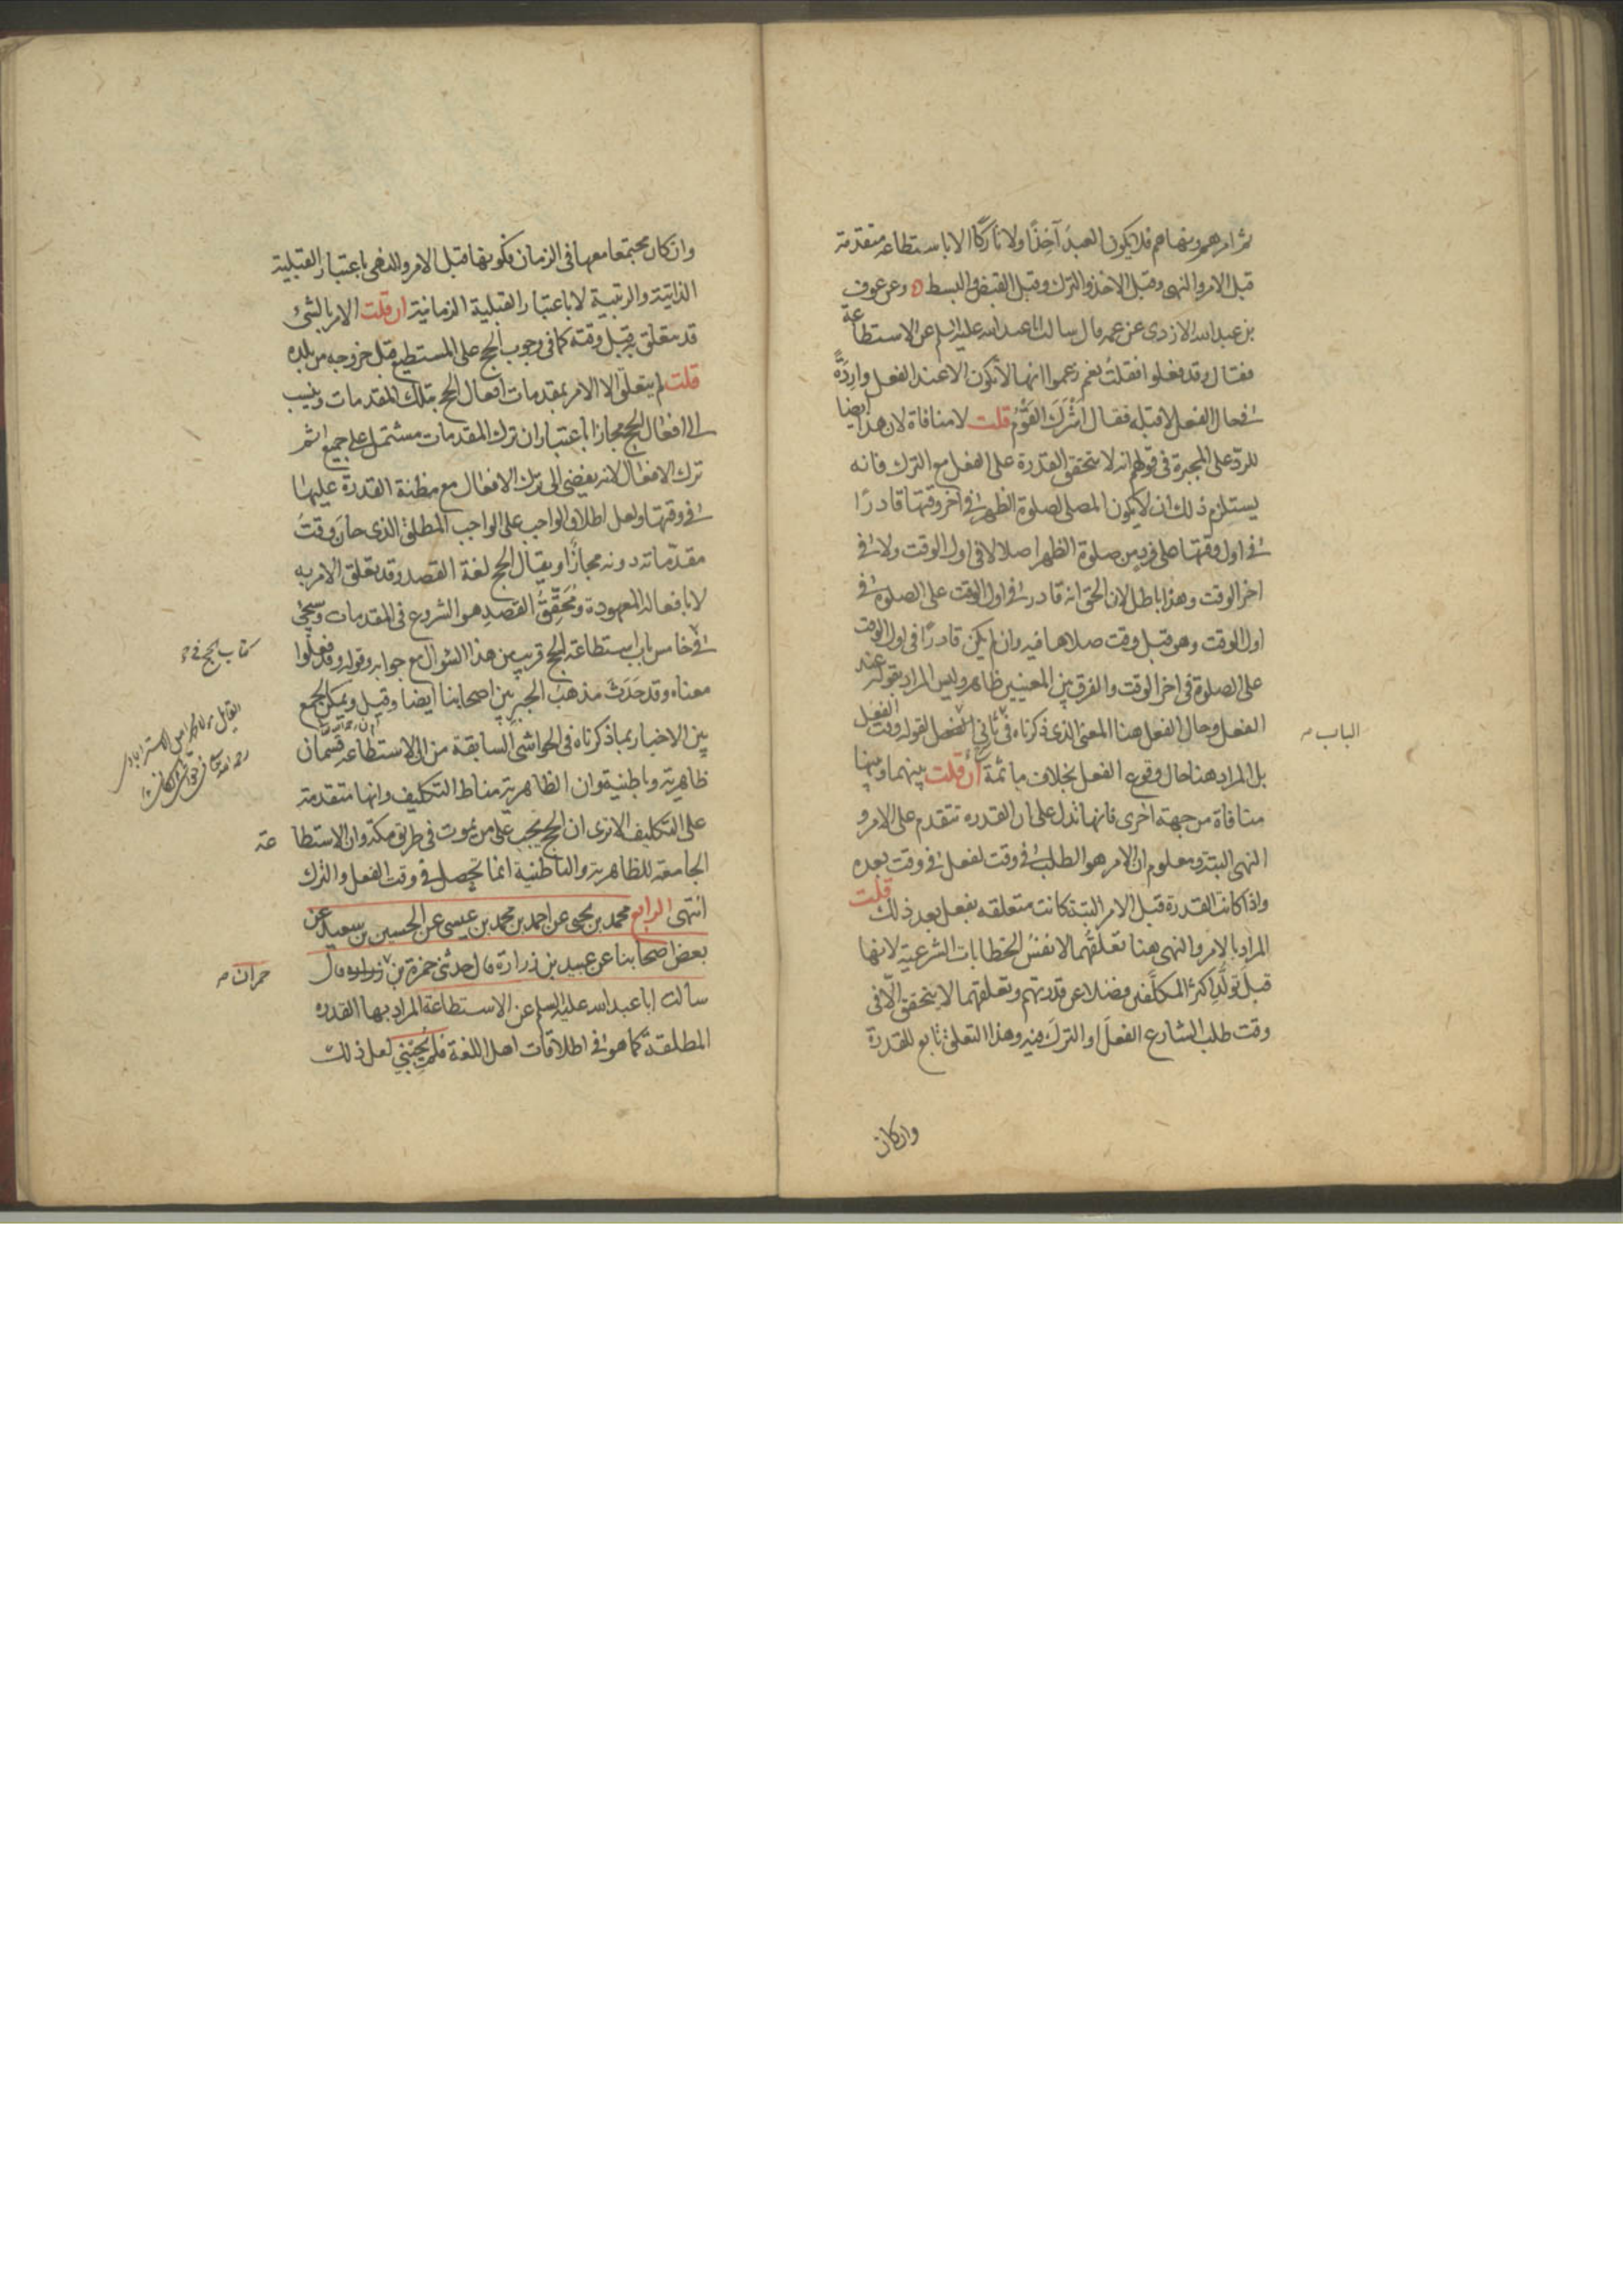 ثم امرهم ونهاهم فلا يكون العبد آخِذًا ولا تاركًا الا باستطاعة متقدمة
قبل الامر والنهى وقبل الاخذ والترك وقبل القبض والبسط وعن عوف
بن عبد الله الازدى عن عمه قال سالت ابا عبد الله عليه السلم عن الاستطاعة
فقال وقد فعلوا فقلتُ نعم زعموا انها لا تكون الا عند الفعل وارِدَةً
فى حال الفعل لا قبله فقال اَشْرَكَ القَوْمُ قلت لا منافاة لان هذا ايضا
للردّ على المجبرة فى قولهم انه لا يتحقق القدرة على الفعل مع الترك فانه
يستلزم ذلك ان لا يكون المصلى لصلوة الظهر فى اخر وقتها قادرًا
فى اول وقتها على فردين صلوة الظهر اصلا لا فى اول الوقت ولا فى
اخر الوقت وهذا باطل لان الحق انه قادر فى اول الوقت على الصلوة فى
اول الوقت وهو قبل وقت صلاها فيه وان لم يكن قادرًا فى اول الوقت
على الصلوة فى اخر الوقت والفرق بين المعنيين ظاهر وليس المراد بقوله عند
الفعل وحال الفعل هنا المعنى الذى ذكرناه فى ثانى لقوله وقت الفعل
الباب
بل المراد هنا حال وقوع الفعل بخلاف ما ثمة ان قلت بينهما وبينها
منافاة من جهة اخرى فانها تدل على ان القدرة تتقدم على الامر و
النهى البتة ومعلوم ان الامر هو الطلب فى وقت لفعل فى وقت بعده
واذا كانت القدرة قبل الامر البتة كانت متعلقه بفعل بعد ذلك قلت
المراد بالامر والنهى هنا تعلقُهما لا نفسُ الخطابات الشرعية لانها
قبلَ تولُّدِ اكثر المكلَّفين فضلا عن قدرتهم وتعلقهما لا يتحقق الّا فى
وقت طلب الشارع الفعلَ او التركَ فيه وهذا التعلق تابع للقدرة
وان كان
وان كان مجتمعا معها فى الزمان فكونها قبل الامر والنهى باعتبار القبلية
الذاتية والرتبية لا باعتبار القبلية الزمانية ان قلت الامر بالشئ
قد يتعلق به قبل وقته كما فى وجوب الحج على المستطيع قبل خروجه من بلده
قلت لم يتعلق الا الامر بمقدمات افعال الحج بتلك المقدمات وينسب
الى افعال الحج مجازًا باعتبار ان ترك المقدمات مشتمل على جميع اثم
ترك الافعال لانه يفضى الى ترك الافعال مع مظنة القدرة عليها
فى وقتها ولعل اطلاق الواجب على الواجب المطلق الذى حان وقتُ
مقدّماته دونه مجازًا ويقال الحج لغة القصد وقد تعلق الامر به
لا بافعاله المعهودة ومُحَقِّقُ القصدِ هو الشروع فى المقدمات وسيجئ
فى خامس باب استطاعة الحج قريب من هذا السؤال مع جوابه وقوله وقد فعلوا
كتاب الحج فى
معناه وقد حَدَثَ مذهبُ الجبر بين اصحابنا ايضا وقيل ويمكن الجمع
بين الاخبار بما ذكرناه فى الحواشى السابقة من ان الاستطاعة قسمان
القائل مولانا محمد امين الاستر ابادى
ظاهرية وباطنية وان الظاهرية مناط التكليف وانها متقدمة
على التكليف الا ترى ان الحج يجب على من يموت فى طريق مكة وان الاستطاعة
الجامعة للظاهرية والباطنية انما تحصل فى وقت الفعل والترك
انتهى الرابع محمد بن يحيى عن احمد بن محمد بن عيسى عن الحسين بن سعيد عن
بعض اصحابنا عن عبيد بن زرارة قال حدثنى حمزة بن زراره قال
حمران
سالت ابا عبد الله عليه السلم عن الاستطاعة المراد بها القدره
المطلقة كما هو فى اطلاقات اهل اللغة فلم يُجِبْنِي لعل ذلك